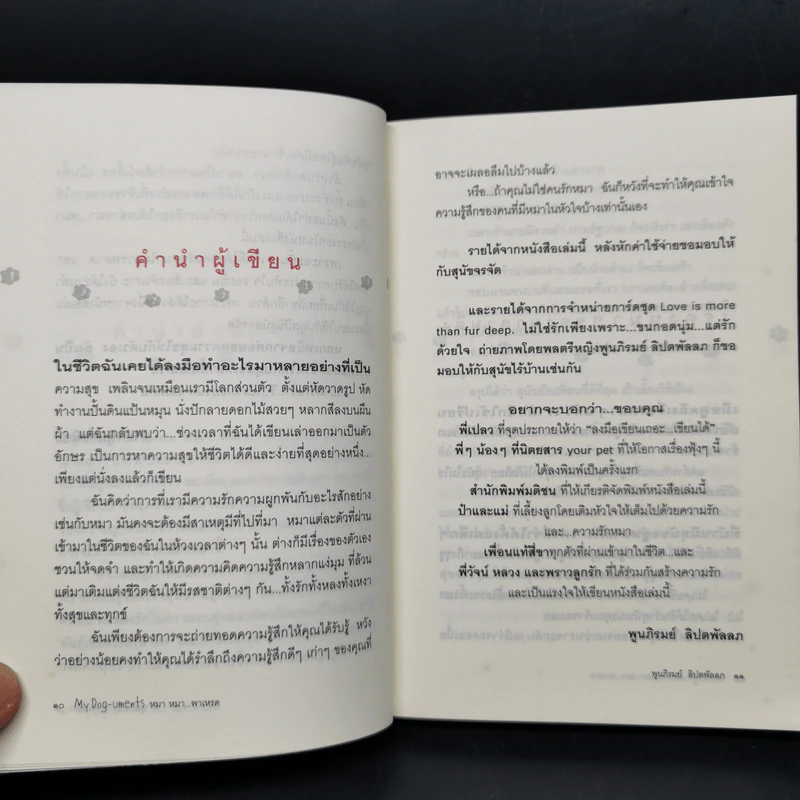 คำนำผู้เขียน
ในชีวิตฉันเคยได้ลงมือทำอะไรมาหลายอย่างที่เป็น
ความสุข เพลินจนเหมือนเรามีโลกส่วนตัว ตั้งแต่หัดวาดรูป หัด
ทำงานปั้นดินแป้นหมุน นั่งปักลายดอกไม้สวยๆ หลากสีลงบนผืน
ผ้า แต่ฉันกลับพบว่า...ช่วงเวลาที่ฉันได้เขียนเล่าออกมาเป็นตัว
อักษร เป็นการหาความสุขให้ชีวิตได้ดีและง่ายที่สุดอย่างหนึ่ง...
เพียงแต่นั่งลงแล้วก็เขียน
ฉันคิดว่าการที่เรามีความรักความผูกพันกับอะไรสักอย่าง
เช่นกับหมา มันคงจะต้องมีสาเหตุมีที่ไปที่มา หมาแต่ละตัวที่ผ่าน
เข้ามาในชีวิตของฉันในห้วงเวลาต่างๆ นั้น ต่างก็มีเรื่องของตัวเอง
ชวนให้จดจำ และทำให้เกิดความคิดความรู้สึกหลากแง่มุม ที่ล้วน
แต่มาเติมแต่งชีวิตฉันให้มีรสชาติต่างๆ กัน...ทั้งรักทั้งหลงทั้งเหงา
ทั้งสุขและทุกข์
ฉันเพียงต้องการจะถ่ายทอดความรู้สึกให้คุณได้รับรู้ หวัง
ว่าอย่างน้อยคงทำให้คุณได้รำลึกถึงความรู้สึกดีๆ เก่าๆ ของคุณที่
๑๐ My Dog-uments หมา หมา...พาเหรด
อาจจะเผลอลืมไปบ้างแล้ว
หรือ...ถ้าคุณไม่ใช่คนรักหมา ฉันก็หวังที่จะทำให้คุณเข้าใจ
ความรู้สึกของคนที่มีหมาในหัวใจบ้างเท่านั้นเอง
รายได้จากหนังสือเล่มนี้ หลังหักค่าใช้จ่ายขอมอบให้
กับสุนัขจรจัด
และรายได้จากการจำหน่ายการ์ดชุด Love is more
than fur deep. ไม่ใช่รักเพียงเพราะ...ขนกอดนุ่ม...แต่รัก
ด้วยใจ ถ่ายภาพโดยพลตรีหญิงพูนภิรมย์ ลิปตพัลลภ ก็ขอ
มอบให้กับสุนัขไร้บ้านเช่นกัน
อยากจะบอกว่า...ขอบคุณ
พี่เปลว ที่จุดประกายให้ว่า “ลงมือเขียนเถอะ...เขียนได้”
พี่ๆ น้องๆ ที่นิตยสาร your pet ที่ให้โอกาสเรื่องฟุ้งๆ นี้
ได้ลงพิมพ์เป็นครั้งแรก
สำนักพิมพ์มติชน ที่ให้เกียรติจัดพิมพ์หนังสือเล่มนี้
ป๋าและแม่ ที่เลี้ยงลูกโดยเติมหัวใจให้เต็มไปด้วยความรัก
และ...ความรักหมา
เพื่อนแท้สี่ขาทุกตัวที่ผ่านเข้ามาในชีวิต...และ
พี่วัจน์ หลวง และพราวลูกรัก ที่ได้ร่วมกันสร้างความรัก
และเป็นแรงใจให้เขียนหนังสือเล่มนี้
พูนภิรมย์ ลิปตพัลลภ
พูนภิรมย์ ลิปตพัลลภ ๑๑